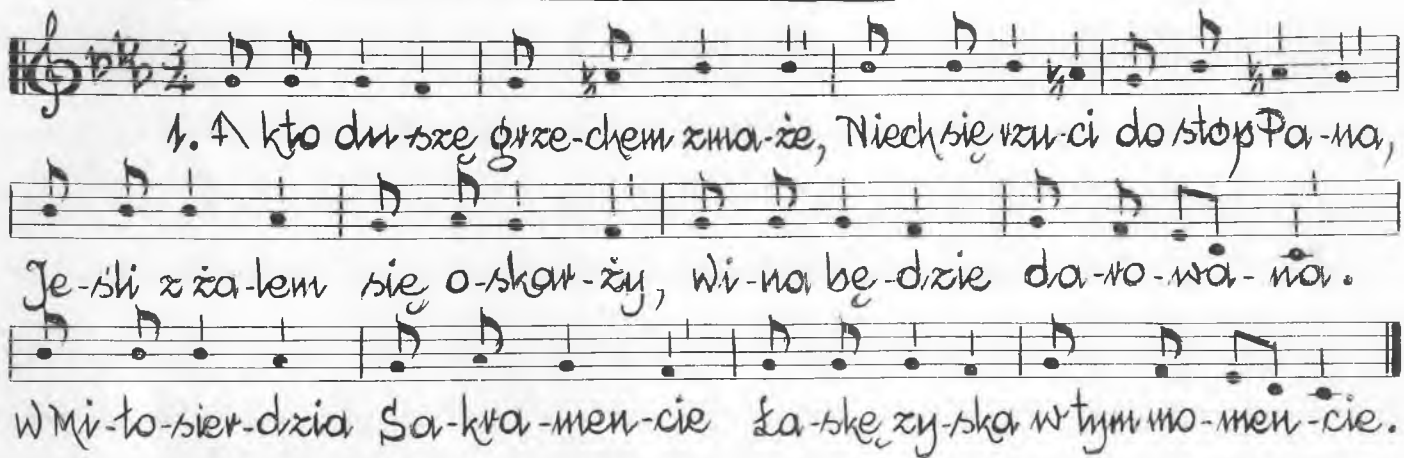 1. A kto du-szę grze-chem zma-że, Niech się rzu-ci do stóp Pa-na,
Je-śli z ża-lem się o-skar-ży, Wi-na bę-dzie da-ro-wa-na.
W Mi-ło-sier-dzia Sa-kra-men-cie Ła-skę zy-ska w tym mo-men-cie.